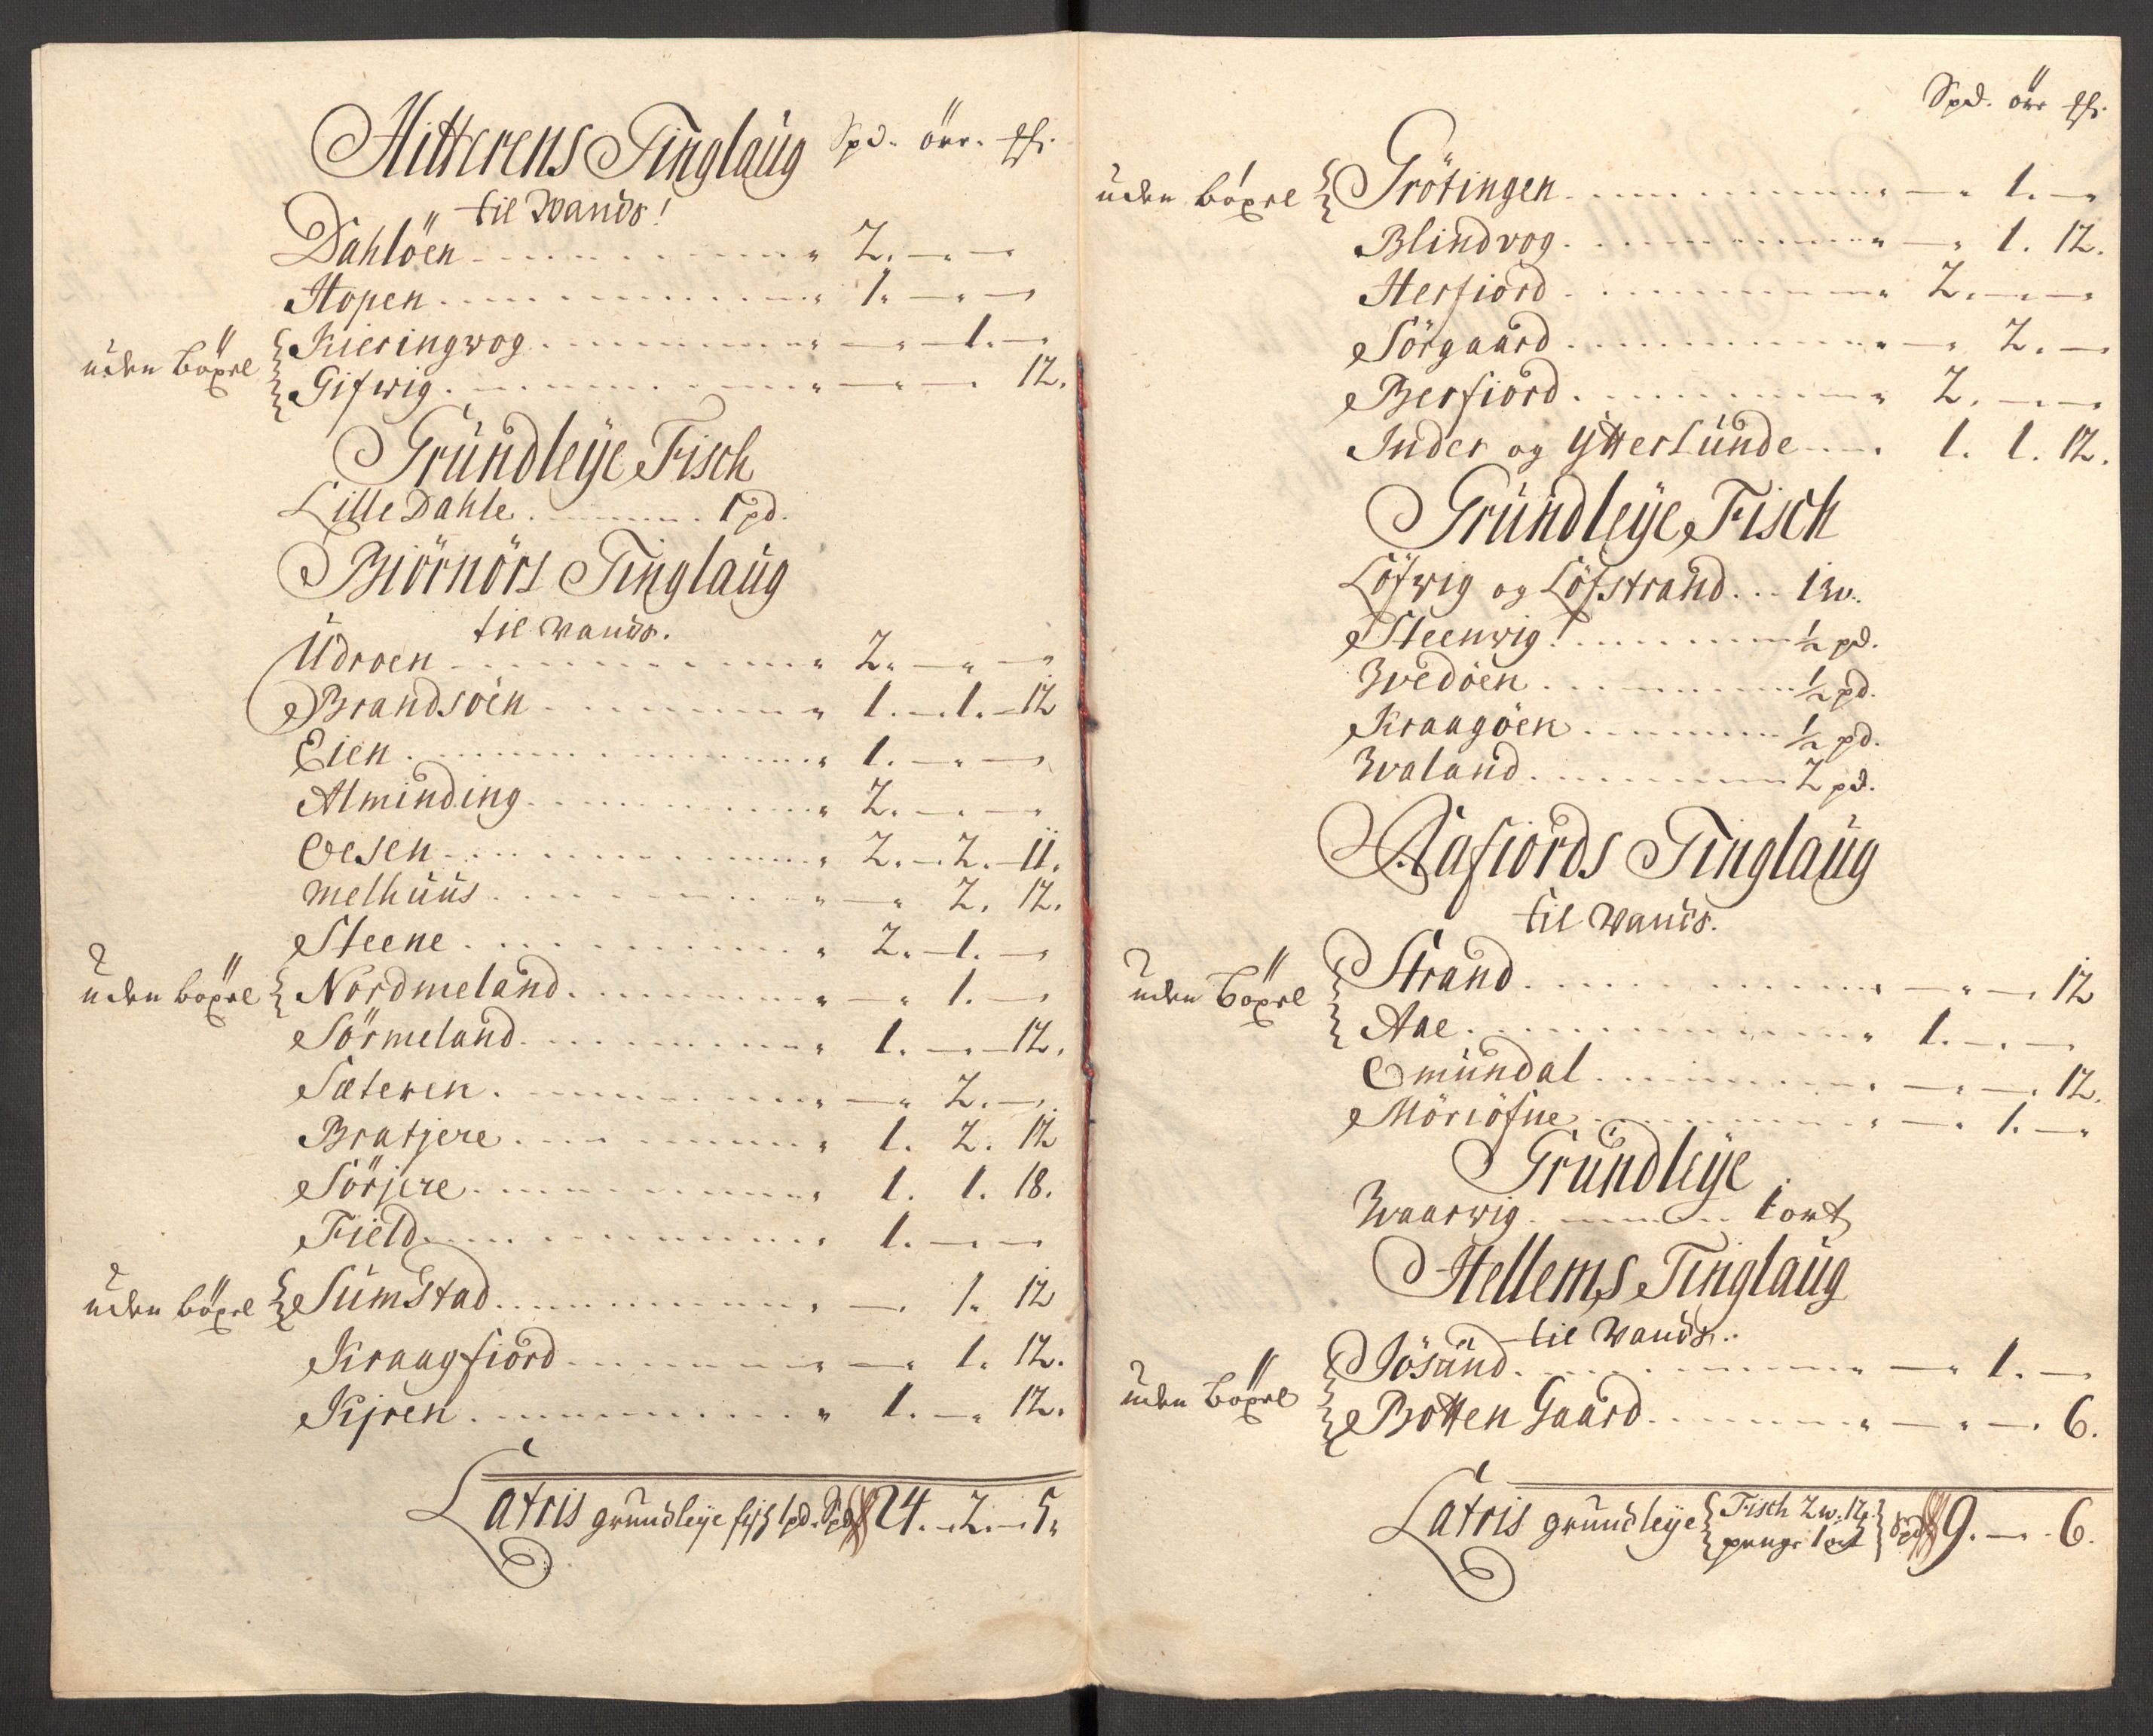 Hitterens Tinglaug Spd. örr.
til Wands!
Dahlöen 2. - -
Hopen 1. - -
uden böxel
Kieringwog - 1. -
Gifwig - - 12.
Gründleÿe Fisch
Lille Dahle 1 pd.
Biörnörs Tinglaug
til wands.
Udroen 2. - -
Brandsöen 1. 1. 12
Eien 1. - -
Alminding 2. - -
Oesen 2. 2. 11.
Melhuus - 2. 12.
Steene 2. 1. -
uden böxel Nordmeland - 1. -
Sörmeland 1. - 12.
Sæteren - 2. -
Bratjere 1. 2. 12
Sörjere 1. 1. 18.
Field 1. - -
uden böxel Sumstad - 1. 12
Kraagfiord - 1. 12.
Kjren 1. - 12.
Latris grundleije fisch 1 pd. Spd 24. 2. 5.
Spd. örr
uden böxel Grötingen - 1. -
Blindvog - 1. 12.
Herfiord 2. - -
Sörgaard - 2. -
Berfiord 2. - -
Inder og Ytterlunde 1. 1. 12.
Gründleÿe Fisch
Löfwig og Löfstrand 1 w.
Steenwig ½ pd.
Wedöen ½ pd.
Kraagöen ½ pd.
Waland 2 pd.
Aafiords Tinglaug
til wands.
uden böxel
Strand - - 12
Aae 1. - -
Omundal - - 12.
Möriöfne - 1. -
Gründleÿe
Waarwig 1 ort
Hellems Tinglaug
til Wands.
uden böxel
Jösund - 1. -
Botten Gaard - - 6.
Latris grundleije Fisch 2 w. 12
penge 1 ort Spd 9. - 6.